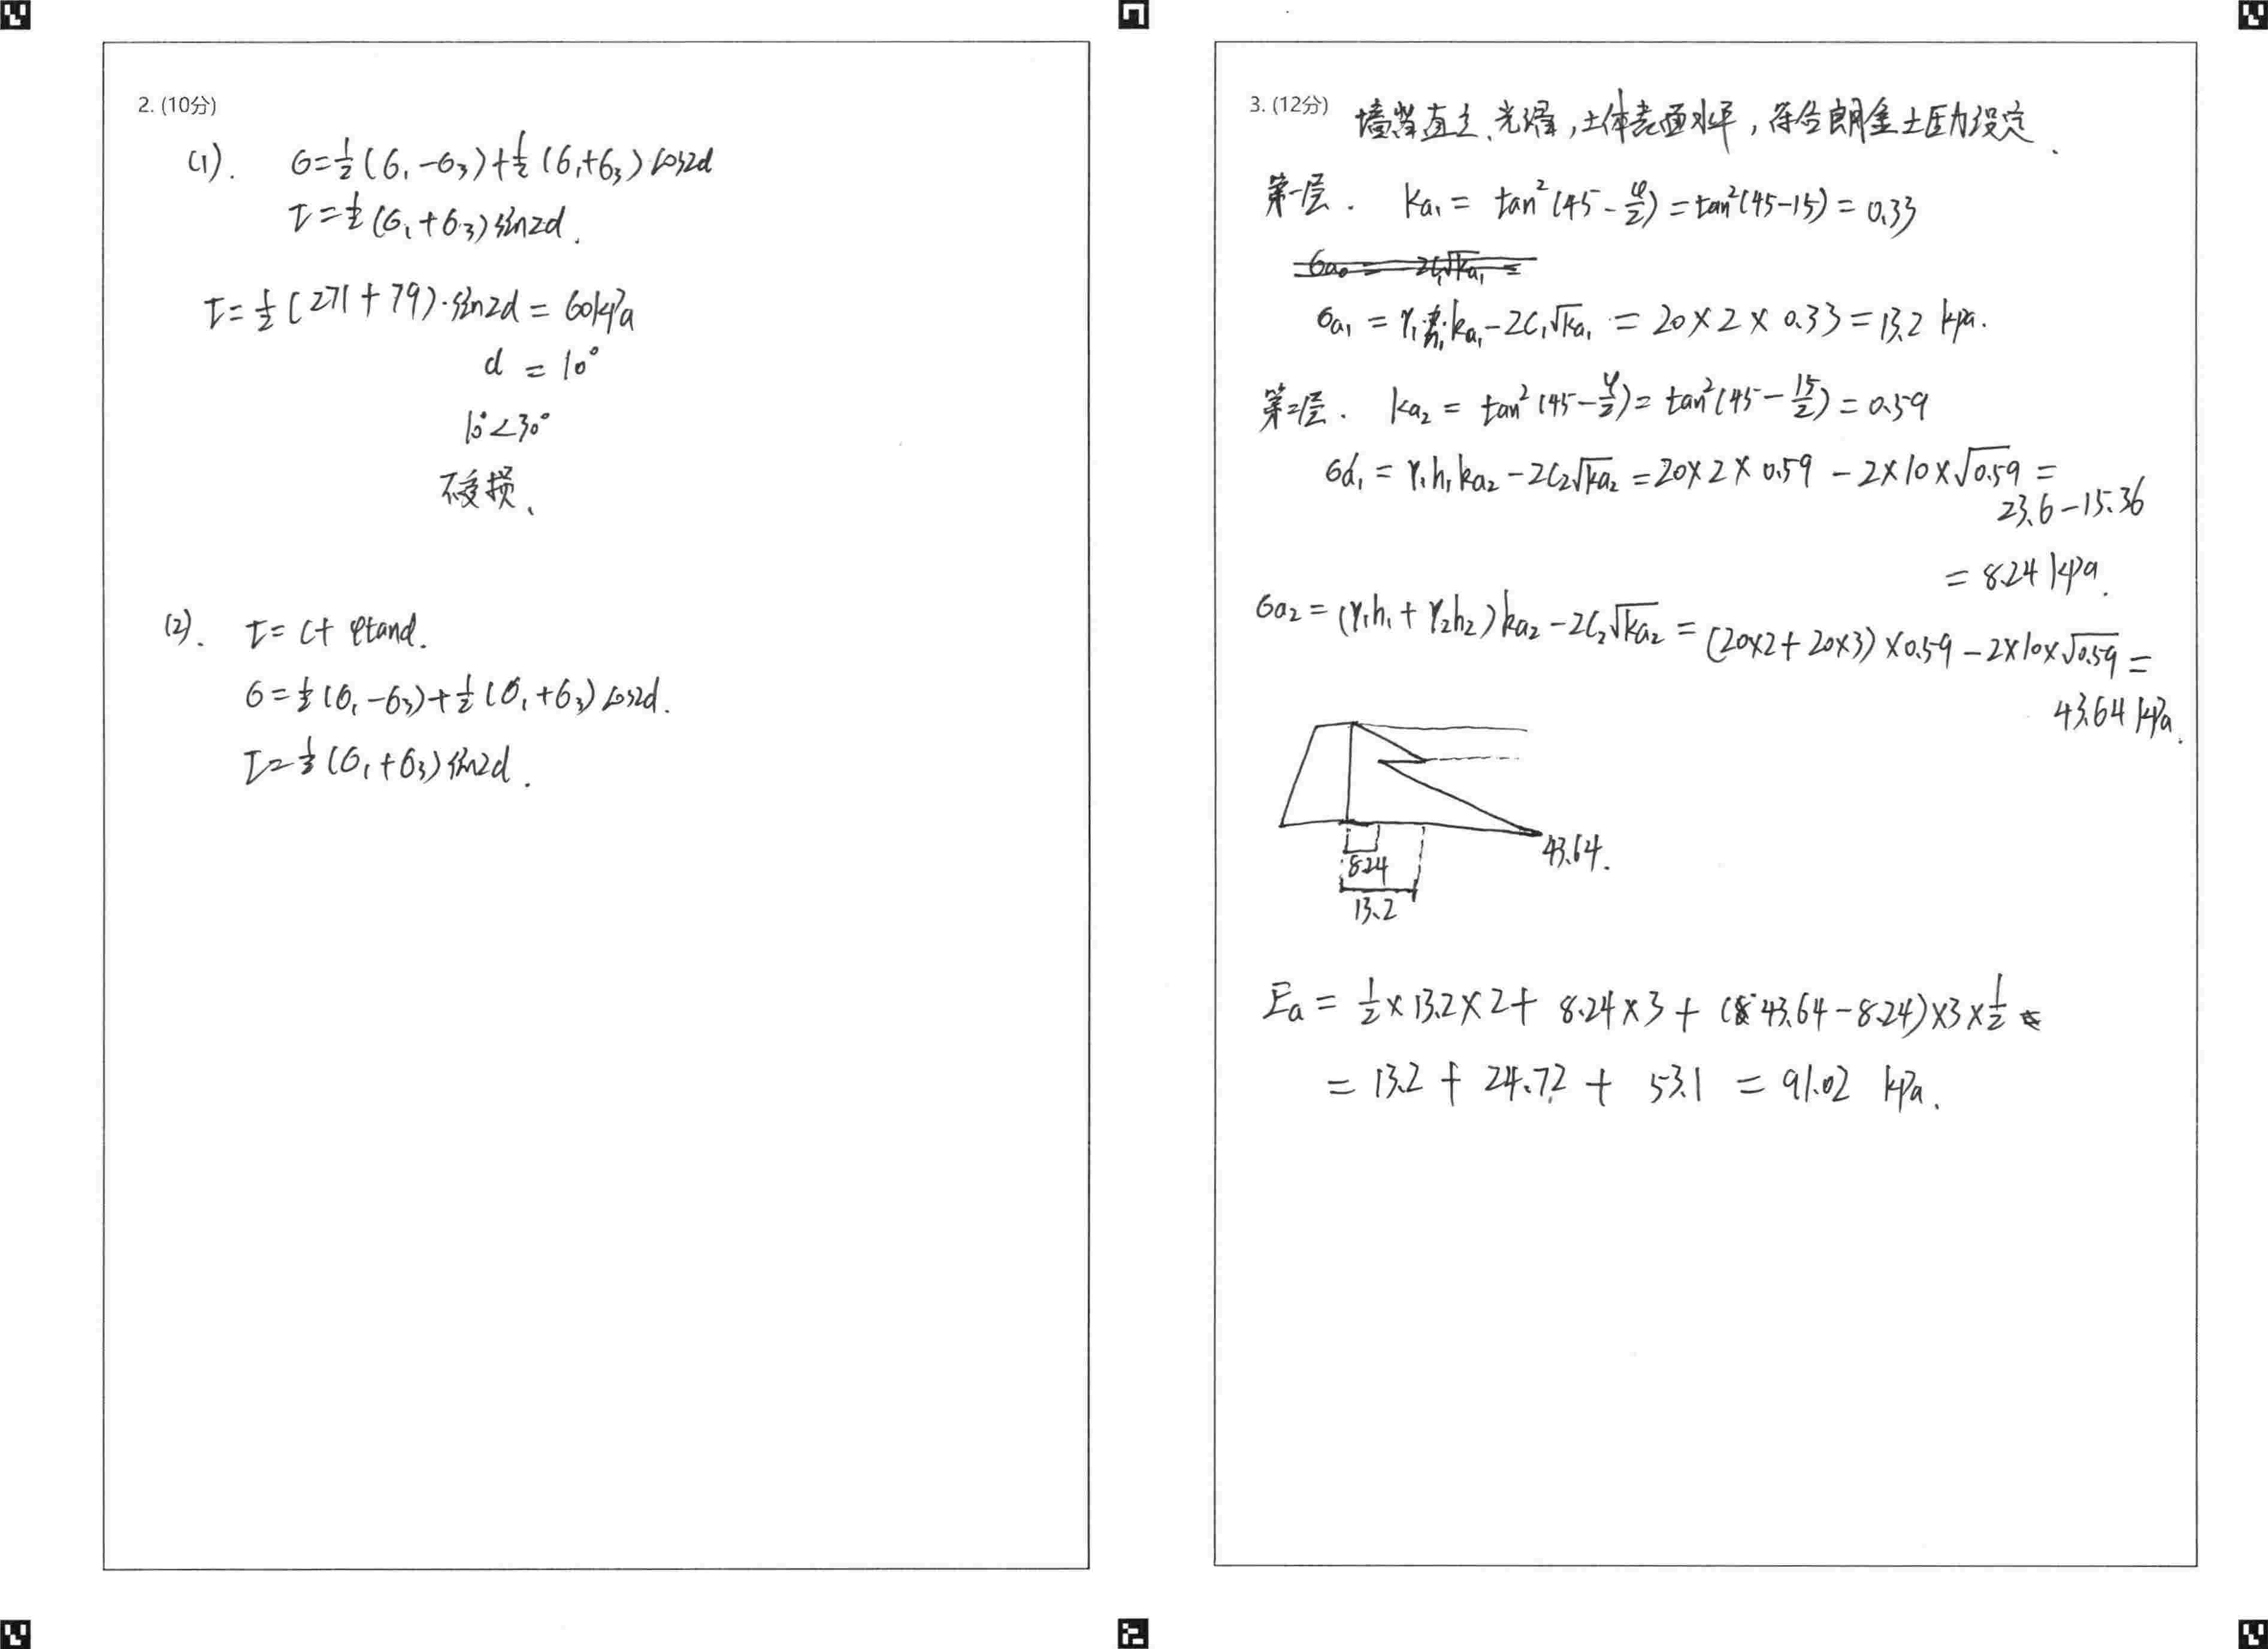 2. (10分)
(1). σ=½(σ₁-σ₃)+½(σ₁+σ₃)cos2α
τ=½(σ₁+σ₃)sin2α.
τ=½(271+79)·sin2α=60kPa
α=10°
10°<30°
不受损、
(2). τ=c+φtanα.
σ=½(σ₁-σ₃)+½(σ₁+σ₃)cos2α.
τ=½(σ₁+σ₃)sin2α.
3. (12分) 墙背直立、光滑,土体表面水平,符合朗金土压力设定.
第一层. ka₁=tan²(45-φ/2)=tan²(45-15)=0.33
σa₀= 2c₁√ka₁=
σa₁=γ₁h₁ka₁-2c₁√ka₁=20×2×0.33=13.2 kPa.
第二层. ka₂=tan²(45-φ/2)=tan²(45-15/2)=0.59
σa₁'=γ₁h₁ka₂-2c₂√ka₂=20×2×0.59-2×10×√0.59=
23.6-15.36
=8.24 kPa.
σa₂=(γ₁h₁+γ₂h₂)ka₂-2c₂√ka₂=(20×2+20×3)×0.59-2×10×√0.59=
43.64 kPa.
43.64.
8.24
13.2
Ea=½×13.2×2+8.24×3+(43.64-8.24)×3×½
=13.2+24.72+53.1=91.02 kPa.